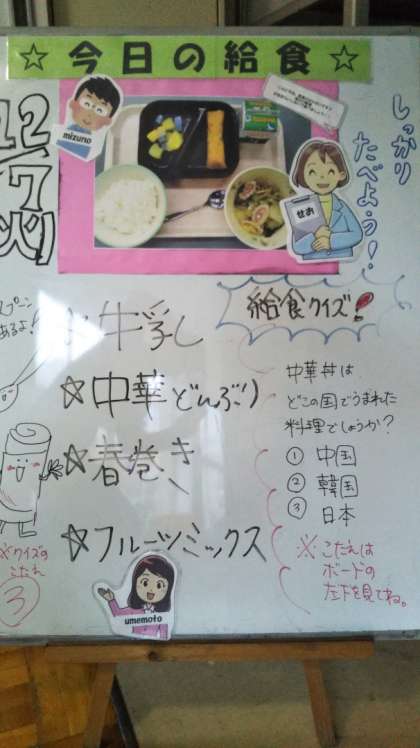 ☆今日の給食☆
12/7(火)
mizuno
せお
しっかり
たべよう!
スプーン
あるよ!
☆牛乳
☆中華どんぶり
☆春巻き
☆フルーツミックス
給食クイズ!
中華丼は
どこの国でうまれた
料理でしょうか?
① 中国
② 韓国
③ 日本
※こたえは
ボードの
左下を見てね。
※クイズの
こたえ
③
umemoto